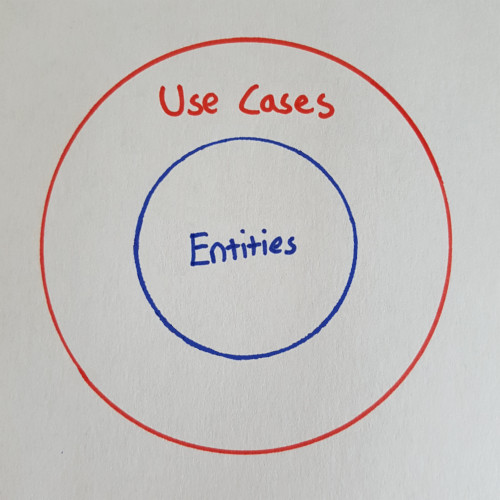 Use Cases
Entities